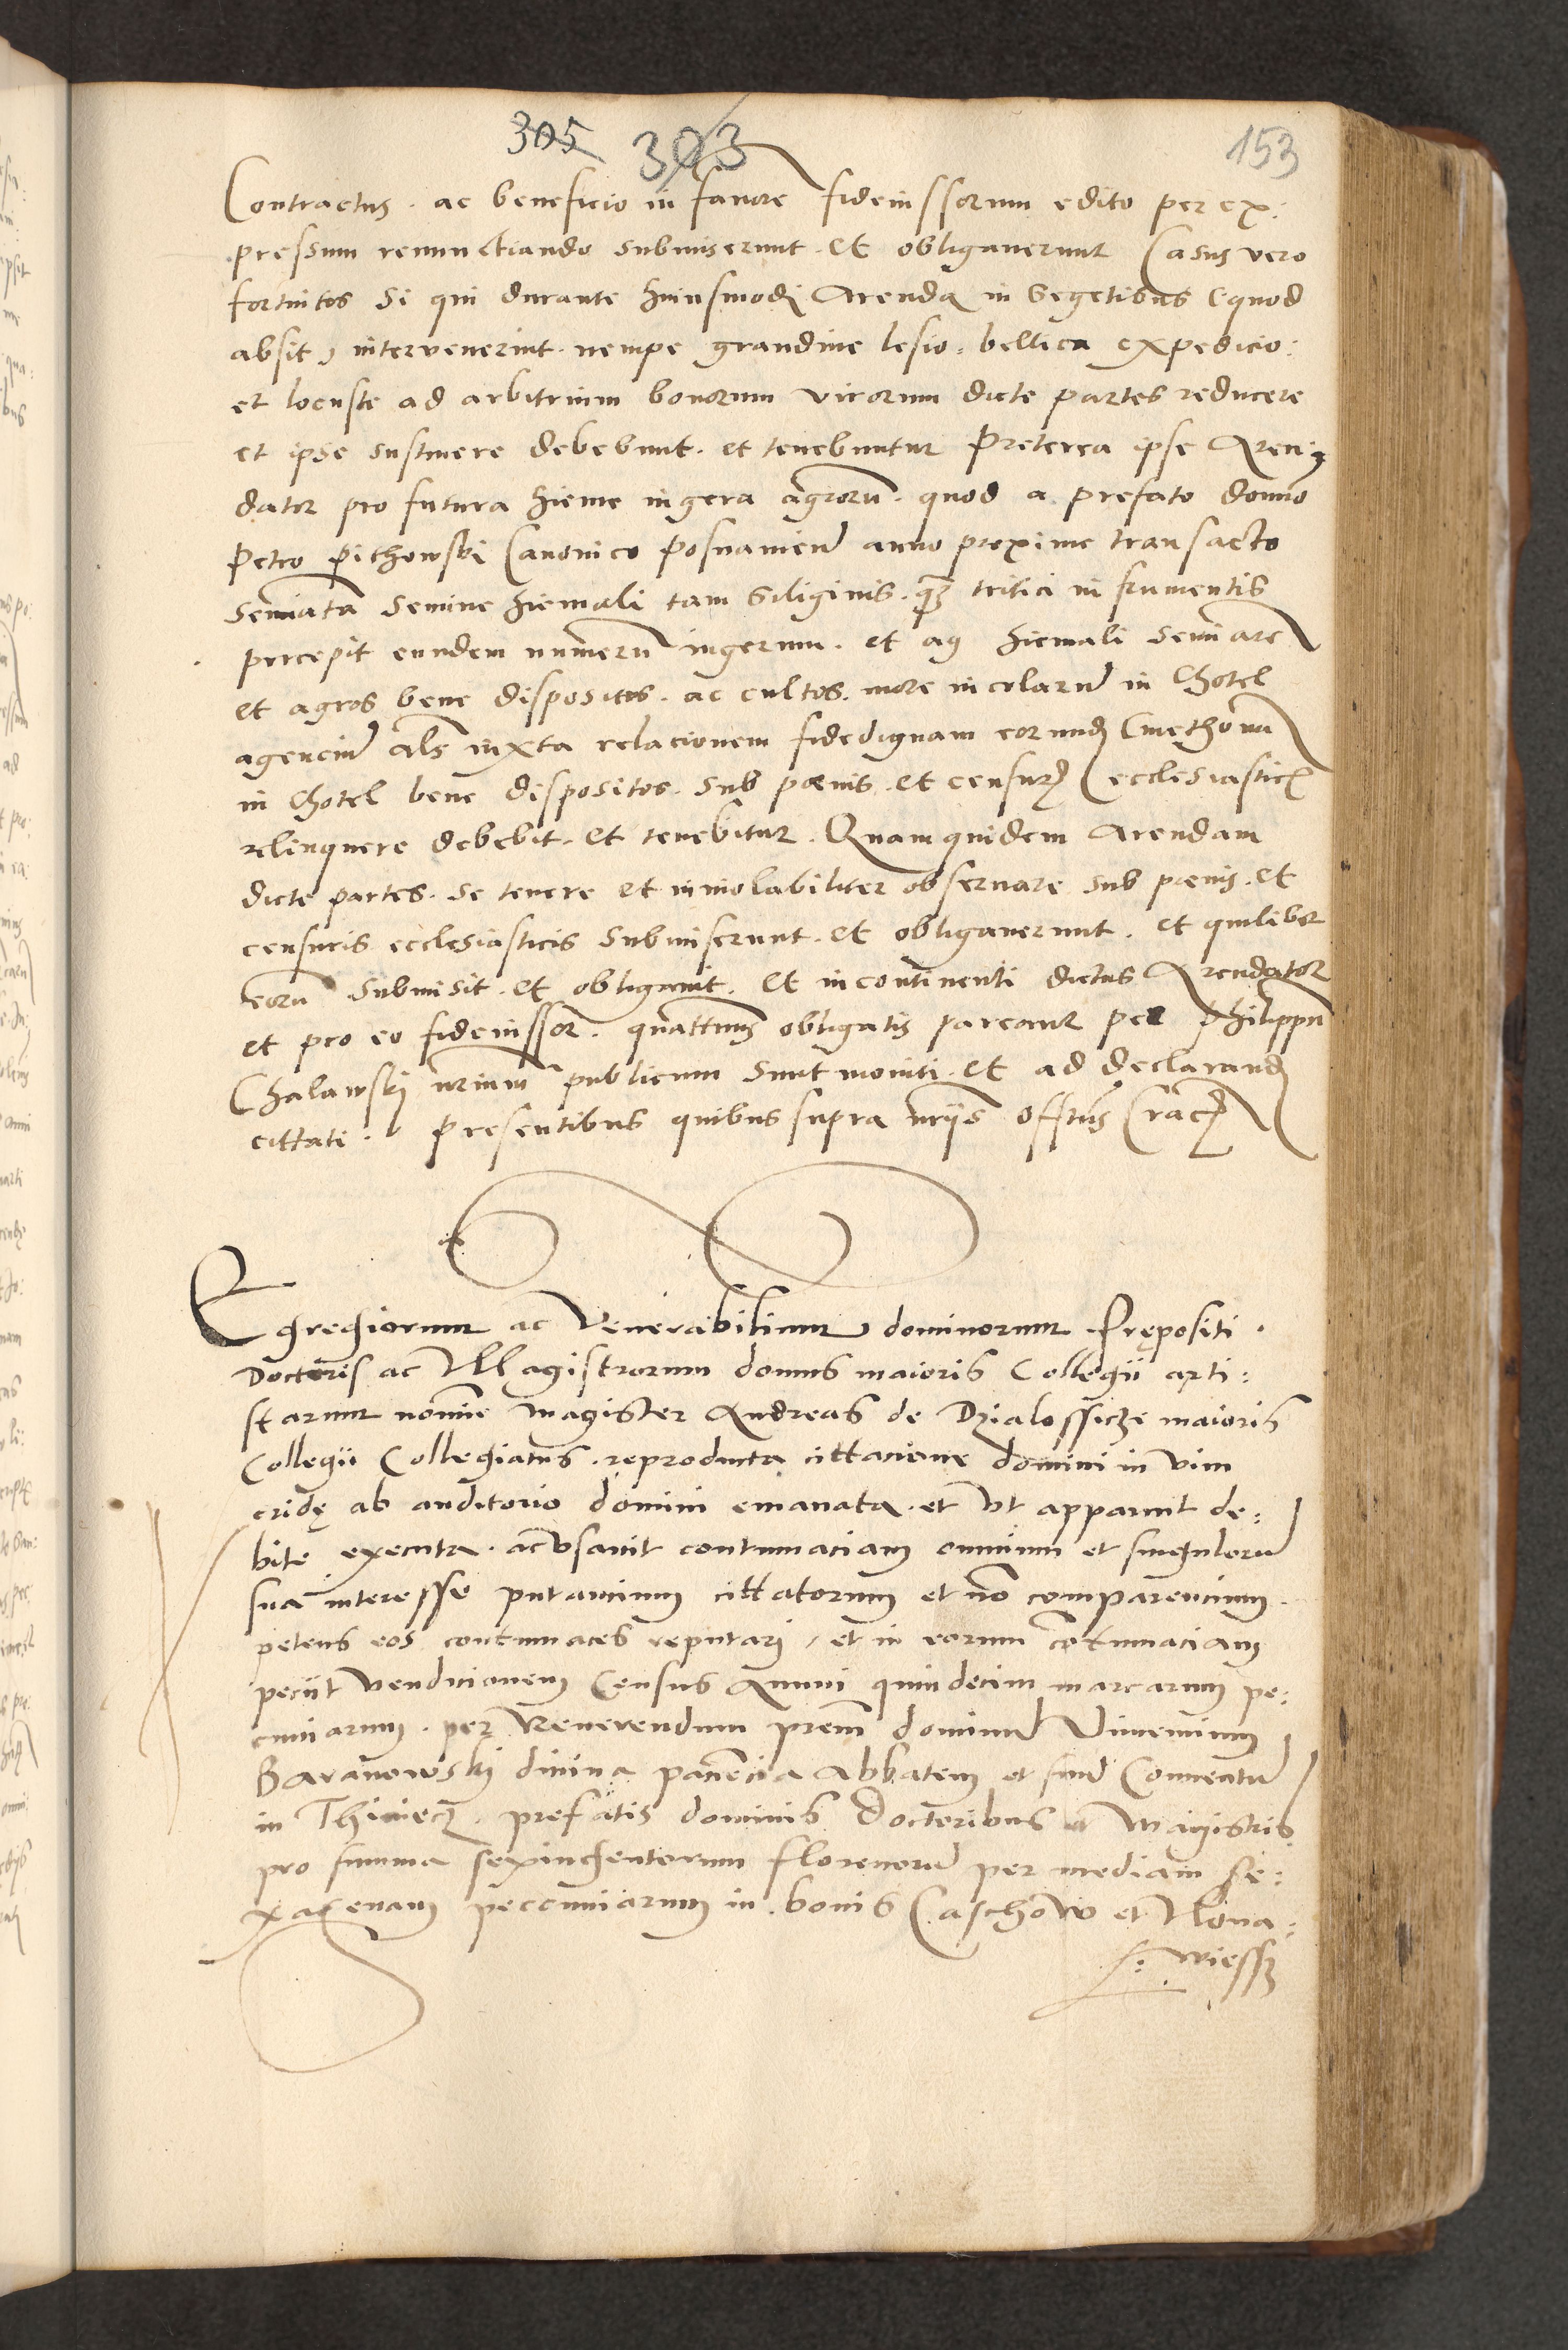 305 303 153
Contractus . ac beneficio in favore fideiussorum edito per ex:
pressum renunctiando submiserunt . et obligaverunt Casus vero
fortuitos Si qui durante huiusmodi Arenda in Segetibus (quod
absit) intervenerint . nempe grandine lesio . bellica expedicio :
et locuste ad arbitrium bonorum virorum dicte partes reducere
et ipse sustinere debebunt . et tenebuntur Preterea ipse Aren:
dator pro futura hieme iugera agrorū . quod a prefato domno
Petro Pithowski Canonico Posnanien anno proxime transacto
semiata semine hiemali tam Siliginis . qz tritici in frumentis
percepit eundem numerū iugerum . et aq hiemali semiare
et agros bene dispositos . ac cultos . more incolarum in Chotel
agencium als iuxta relacionem fidedignam eorund Cmethonū
in Chotel bene dispositos . sub poenis . et censuris ecclesiasticis
relinquere debebit . et tenebitur . Quamquidem Arendam
dicte partes . se tenere et inviolabiliter observare sub poenis . et
censuris ecclesiasticis submiserunt . et obligaverunt . et quilibet
eorū submisit . et obligavit . et incontinenti dictus Arendator
et pro eo fideiussor . quattenus obligatis pareant per Philippū
Chalawski nrium publicum sunt moniti . et ad declarand
cittati . Presentibus quibus supra nriis offtus Crac
Egregiorum ac Venerabilium dominorum Prępositi .
Doctoris ac Magistrorum domus maioris Collegii arti:
starum nomine magister Andreas de Dzialossicze maioris
Collegii Collegiatus . reproducta cittacione domini in vim
cridę ab auditorio domini emanata . et vt apparuit de:
bite executa . acusavit contumaciam omnium et singulorum
sua interesse putancium cittatorum et nō comparencium .
petens eos contumaces reputari , et in eorum cōtumaciam
peciit vendicionem Census Annui quindecim marcarum pe:
cuniarum . per Reverendum prem dominum Vincencium
Baranowski divina paciēcia Abbatem et suum Conventum
in Thiniecz . prefatis dominis Doctoribus et Magistris
pro summa sexingentorum florenorum per mediam se:
xagenam peccuniarum in bonis Caschow et Nova
wiessz